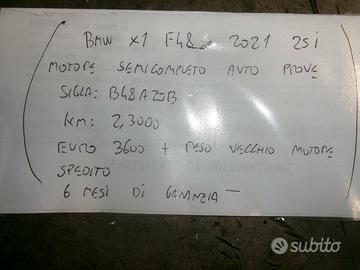 BMW X1 F48 2021 25i
MOTORE SEMICOMPLETO AUTO PROVE
SIGLA: B48A20B
KM: 2,3000
EURO 3600 + RESO VECCHIO MOTORE
SPEDITO
6 MESI DI GARANZIA
subito